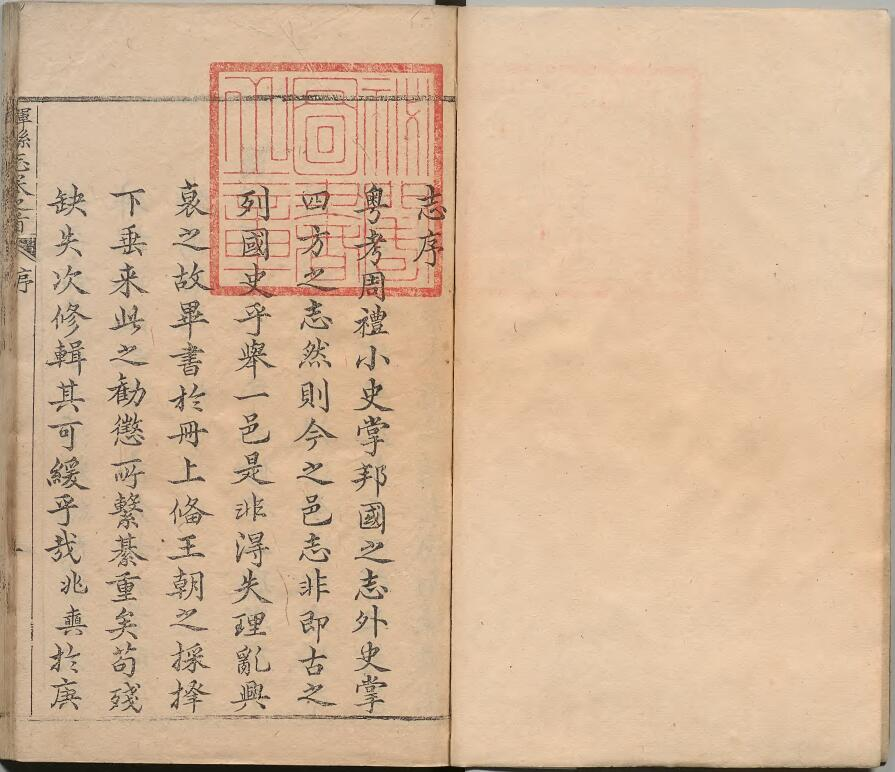 志序
粵考周禮小史掌邦國之志外史掌
四方之志然則今之邑志非即古之
列國史乎舉一邑是非得失理亂興
衰之故畢書於冊上備王朝之採擇
下垂来此之勸懲所繫綦重矣苟殘
缺失次修輯其可緩乎哉兆真於庚
輝縣志卷之首
序